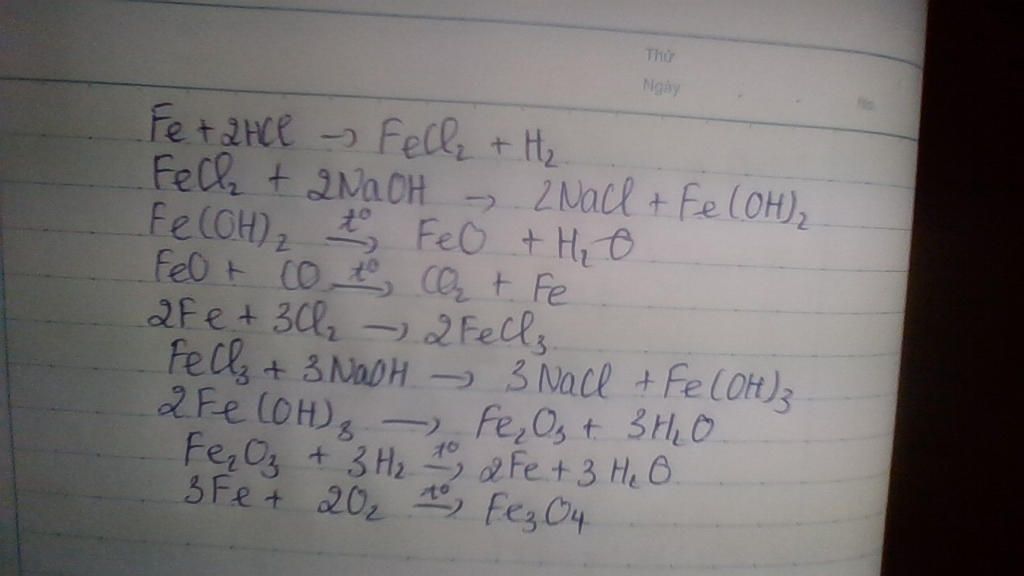 Thứ
Ngày
No.
Fe + 2HCl → FeCl₂ + H₂
FeCl₂ + 2NaOH → 2NaCl + Fe(OH)₂
Fe(OH)₂ →(t°) FeO + H₂O
FeO + CO →(t°) CO₂ + Fe
2Fe + 3Cl₂ → 2FeCl₃
FeCl₃ + 3NaOH → 3NaCl + Fe(OH)₃
2Fe(OH)₃ → Fe₂O₃ + 3H₂O
Fe₂O₃ + 3H₂ →(t°) 2Fe + 3H₂O
3Fe + 2O₂ →(t°) Fe₃O₄